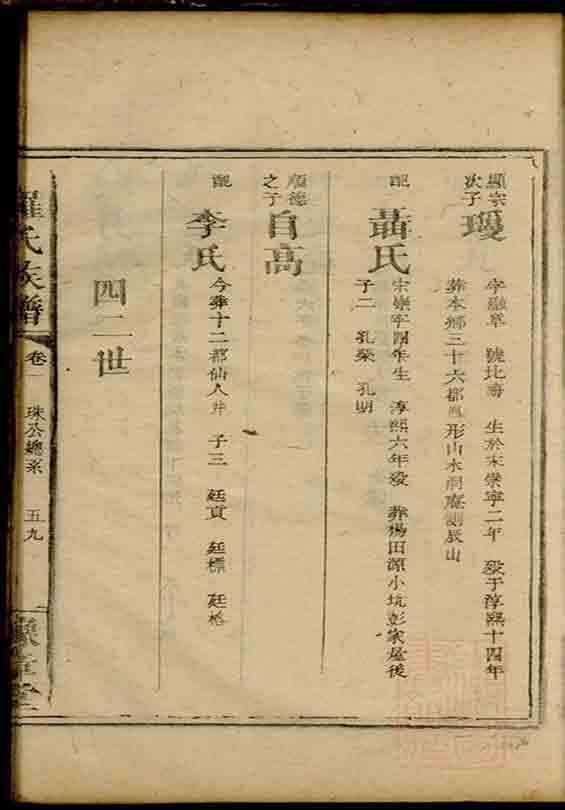 顯宗次子
瓊
字融卓 號比齋 生於宋崇寧二年 歿于淳熙十四年
葬本鄉三十六都 形山木洞庵側辰山
配
聶氏
宋崇寧四年生 淳熙六年歿 葬楊田源小坑彭家屋後
子二 孔榮 孔明
順德之子
自高
配
李氏
今葬十二都仙人井 子三 廷貢 廷標 廷格
四二世
羅氏族譜
卷一 珠公總系 五九